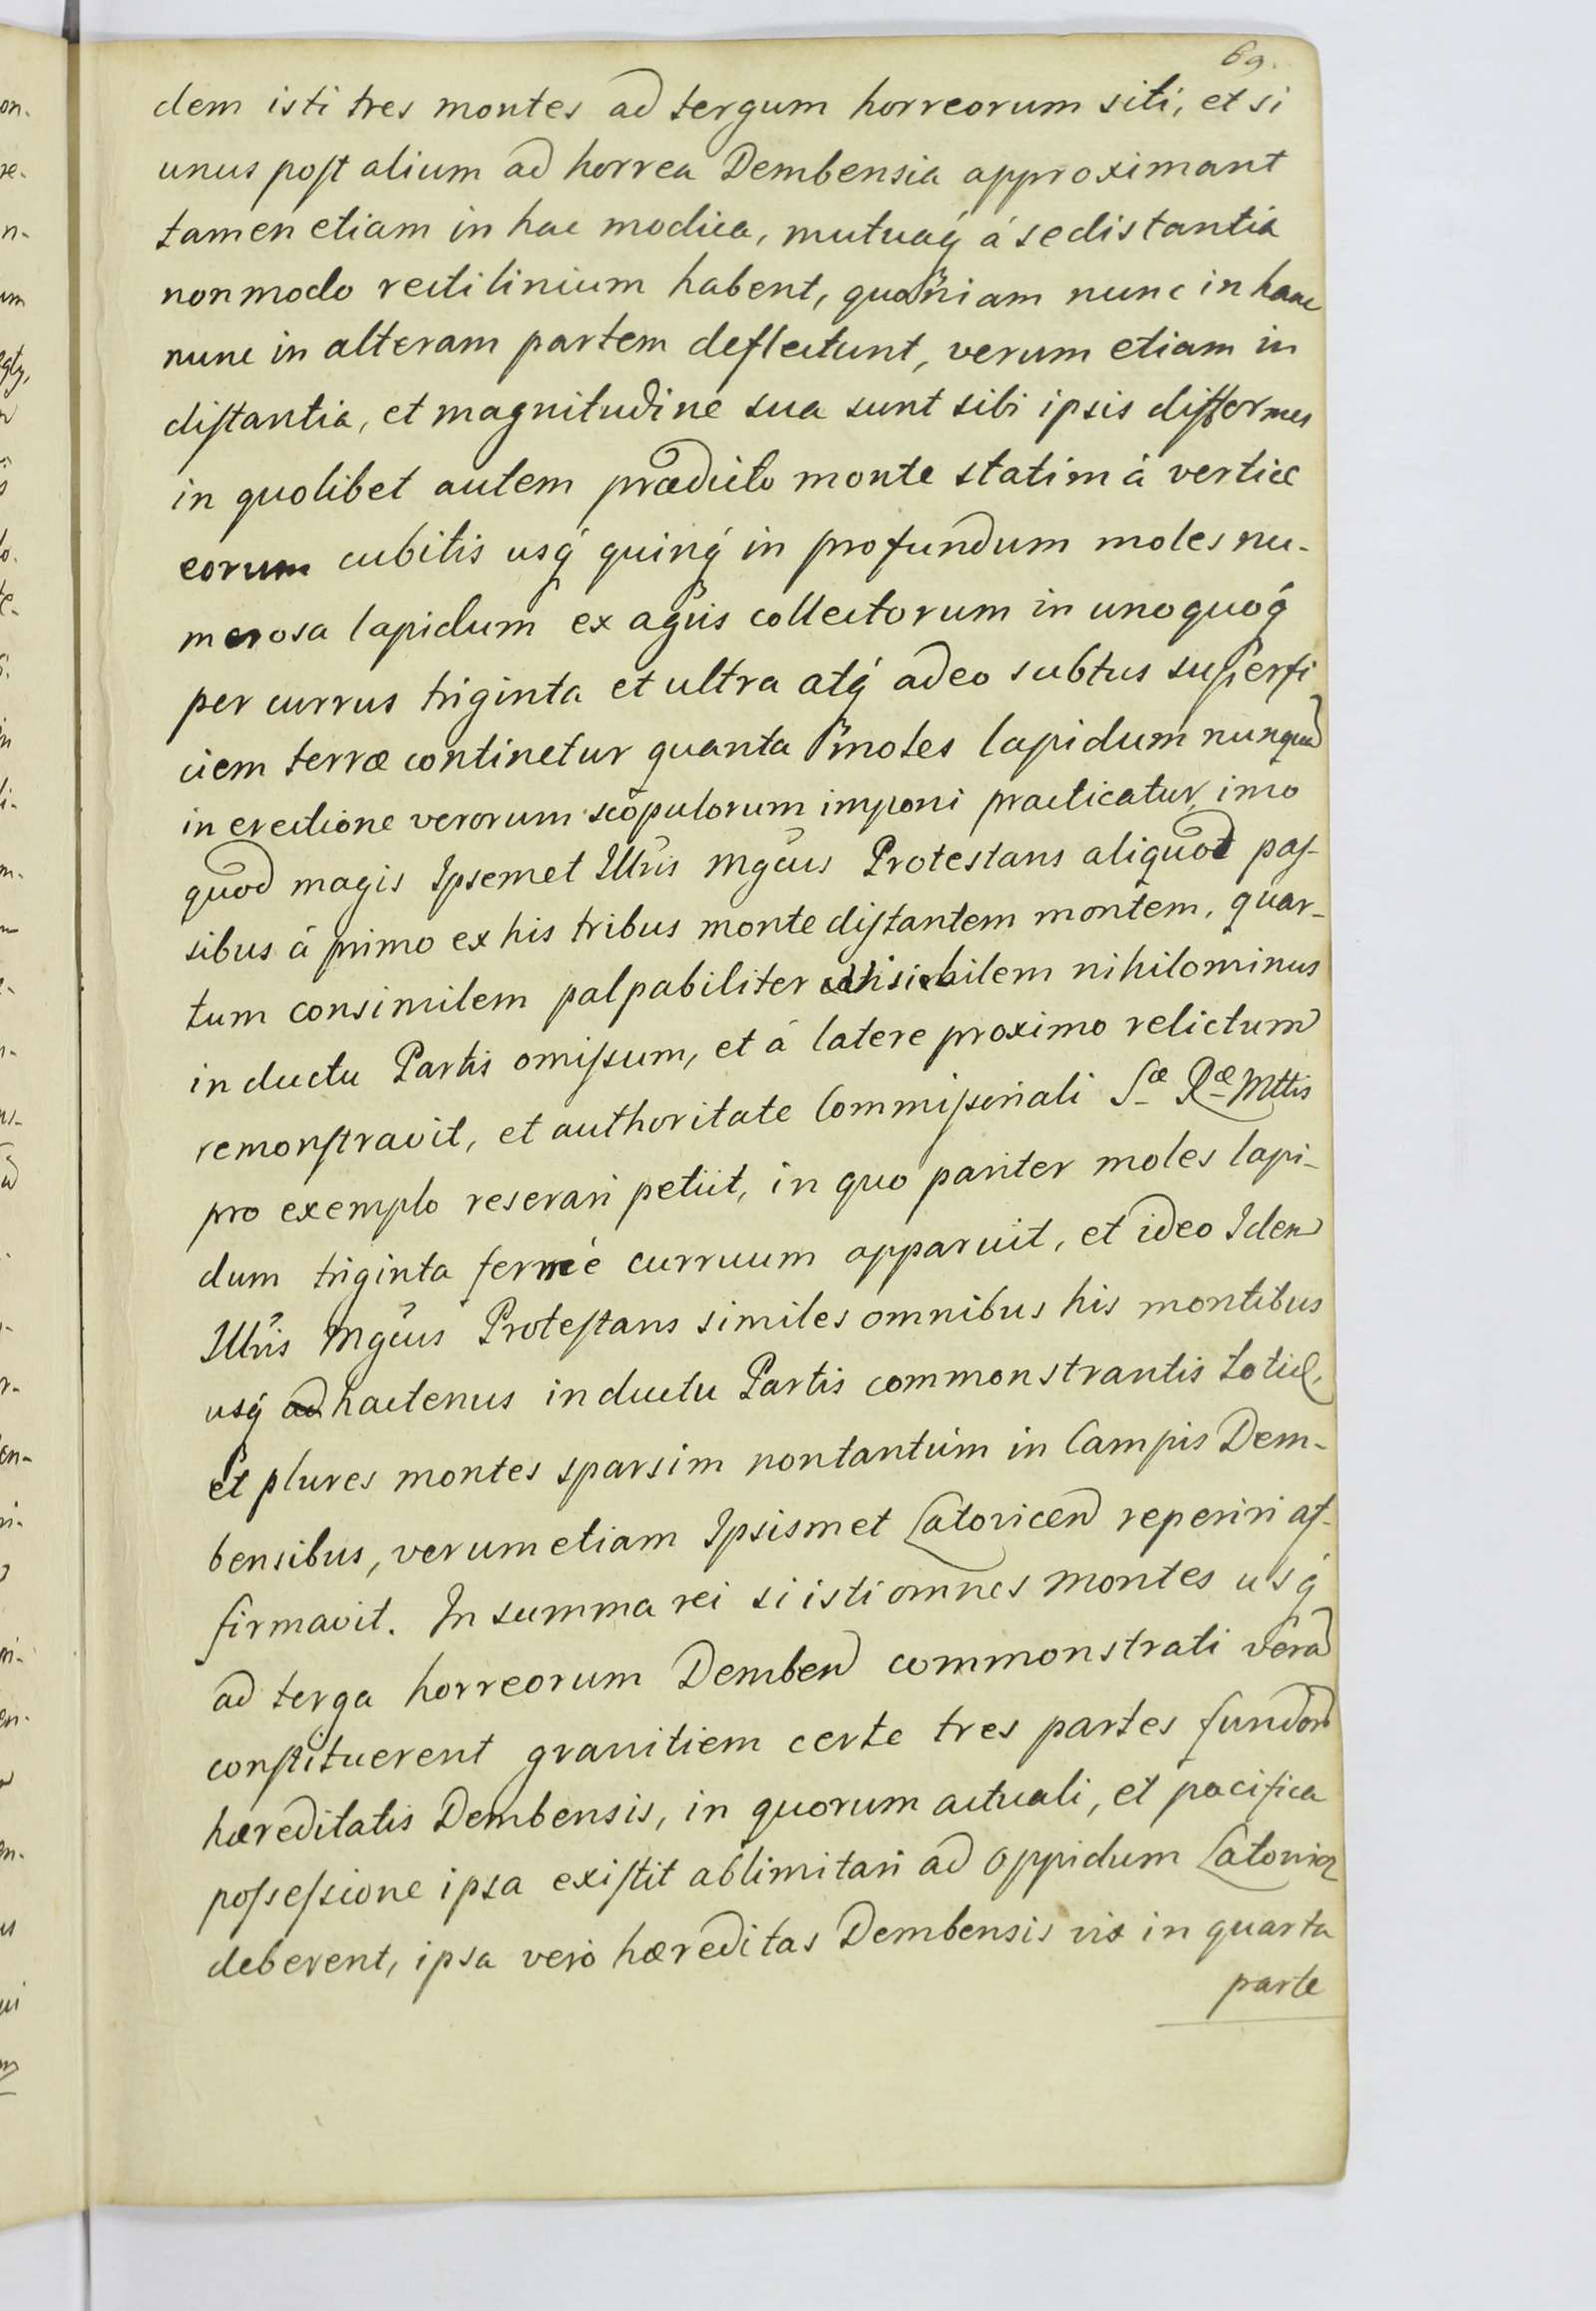 69.
dem isti tres montes ad tergum horreorum siti, et si
unus post alium ad horrea Dembensia approximant
tamen etiam in hac modica, mutuaq́ á se distantia
non modo rectilinium habent, quoniam nunc in hanc
nunc in alteram partem deflectunt, verum etiam in
distantia, et magnitudine sua sunt sibi ipsis difformes
in quolibet autem prædicto monte statim à vertice
eorum cubitis usq́ quinq́ in profundum moles nu-
merosa lapidum ex agris collectorum in unoquoq́
per currus triginta et ultra atq́ adeo subtus superfi
ciem terræ continetur quanta moles lapidum nunquā
in erectione verorum scopulorum imponi practicatur, imo
quod magis Ipsemet Illr̃is Mgc̃us Protestans aliquot pas-
sibus á primo ex his tribus monte distantem montem, quar-
tum consimilem palpabiliter nihilominus
in ductu Partis omissum, et á latere proximo relictum
remonstravit, et authoritate Commissoriali Sæ Ræ Mttis
pro exemplo reserari petiit, in quo pariter moles lapi-
dum triginta fermé curruum apparuit, et ideo Idem
Illr̃is Mgc̃us Protestans similes omnibus his montibus
usq́ hactenus in ductu Partis commonstrantis totid.
et plures montes sparsim non tantúm in Campis Dem-
bensibus, verum etiam Ipsismet Latovicen reperiri af-
firmavit. In summa rei si isti omnes montes usq́
ad terga horreorum Demben commonstrati verā
constituerent granitiem certe tres partes fundor
hæreditatis Dembensis, in quorum actuali, et pacifica
possessione ipsa existit ablimitari ad Oppidum Latovicz
deberent, ipsa veró hæreditas Dembensis vix in quarta
parte